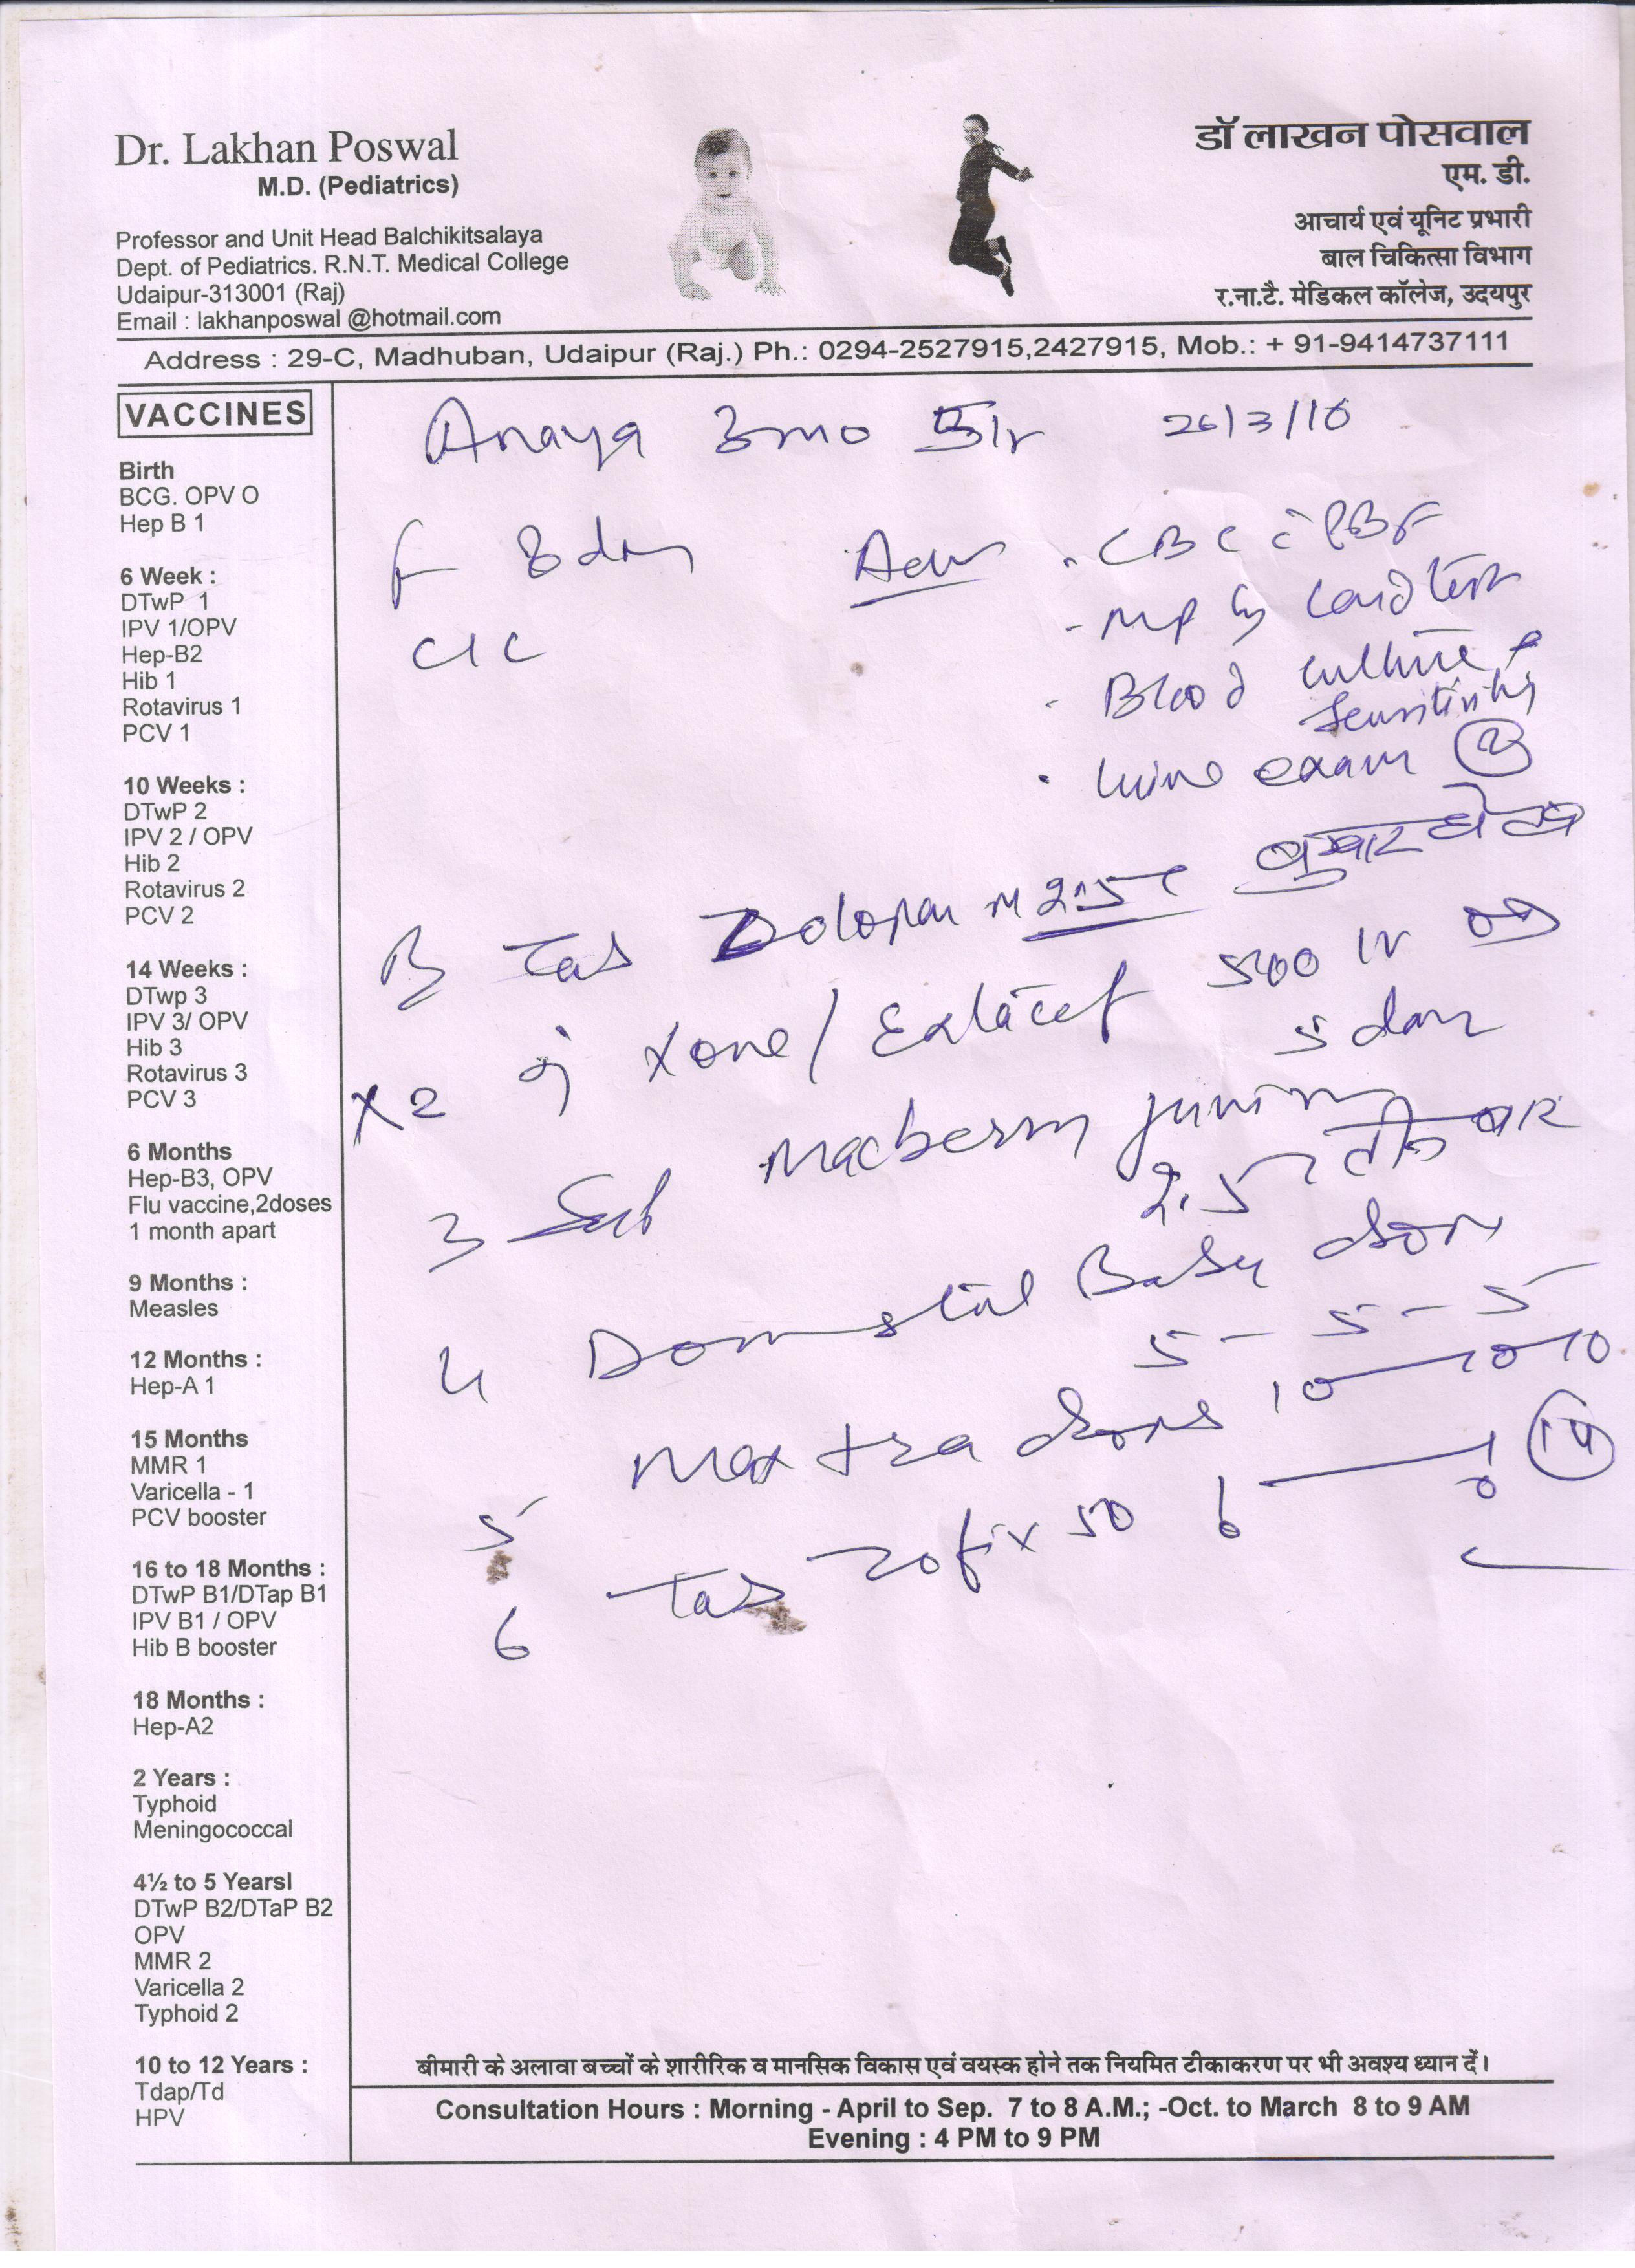 Dr. Lakhan Poswal
M.D. (Pediatrics)
Professor and Unit Head Balchikitsalaya
Dept. of Pediatrics. R.N.T. Medical College
Udaipur-313001 (Raj)
Email : lakhanposwal @hotmail.com
डॉ लाखन पोसवाल
एम. डी.
आचार्य एवं यूनिट प्रभारी
बाल चिकित्सा विभाग
र.ना.टै. मेडिकल कॉलेज, उदयपुर
Address : 29-C, Madhuban, Udaipur (Raj.) Ph.: 0294-2527915,2427915, Mob.: + 91-9414737111
VACCINES
Birth
BCG. OPV O
Hep B 1
6 Week :
DTwP 1
IPV 1/OPV
Hep-B2
Hib 1
Rotavirus 1
PCV 1
10 Weeks :
DTwP 2
IPV 2 / OPV
Hib 2
Rotavirus 2
PCV 2
14 Weeks :
DTwp 3
IPV 3/ OPV
Hib 3
Rotavirus 3
PCV 3
6 Months
Hep-B3, OPV
Flu vaccine,2doses
1 month apart
9 Months :
Measles
12 Months :
Hep-A 1
15 Months
MMR 1
Varicella - 1
PCV booster
16 to 18 Months :
DTwP B1/DTap B1
IPV B1 / OPV
Hib B booster
18 Months :
Hep-A2
2 Years :
Typhoid
Meningococcal
4½ to 5 Yearsl
DTwP B2/DTaP B2
OPV
MMR 2
Varicella 2
Typhoid 2
10 to 12 Years :
Tdap/Td
HPV
Anaya 3mo 26/3/16
F 8 day Adv . CBC c PBF
C/C - MP by Card test
. Blood culture &
sensitivity
. Urine exam
Tab 2.5 बुखार हो तब
X 2 Inj Xone/ Extacef 500 IV OD
5 days
3 Syp Macberry junior
2.5 तीन बार
4 Domstal Baby drops
5 - 5 - 5
5 Maxtra drops 10 - 10 - 10
6 Tab Zofix 50
बीमारी के अलावा बच्चों के शारीरिक व मानसिक विकास एवं वयस्क होने तक नियमित टीकाकरण पर भी अवश्य ध्यान दें।
Consultation Hours : Morning - April to Sep. 7 to 8 A.M.; -Oct. to March 8 to 9 AM
Evening : 4 PM to 9 PM